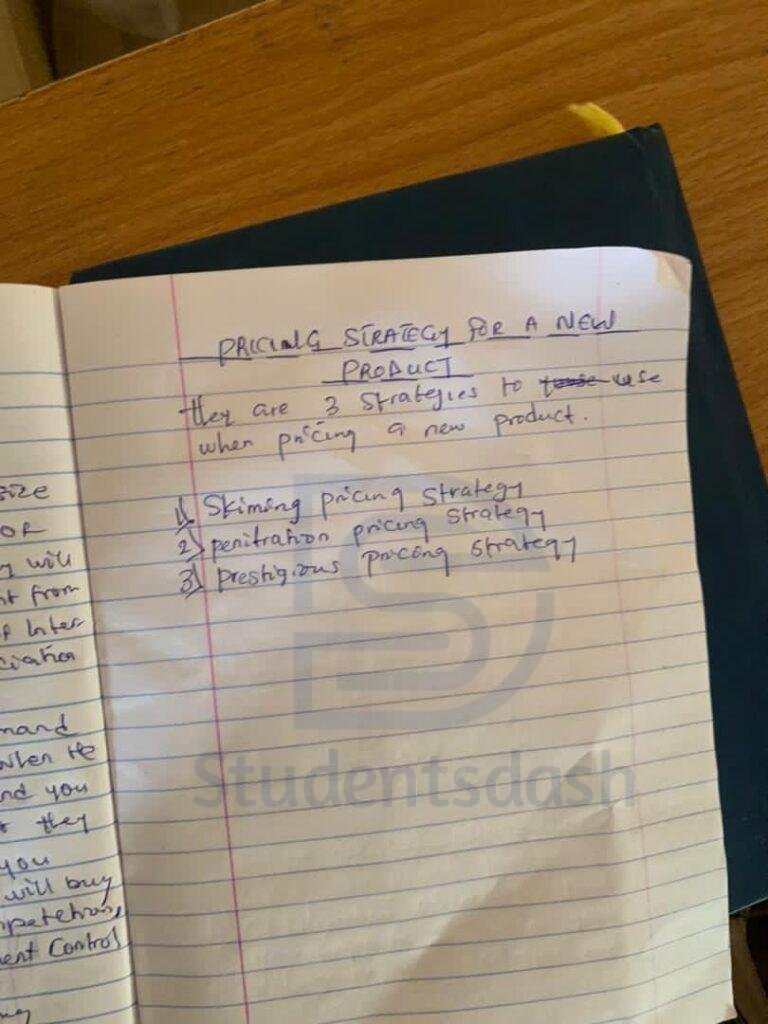 PRICING STRATEGY FOR A NEW
PRODUCT
they are 3 strategies to use
when pricing a new product.
1) Skiming pricing strategy
2) penitration pricing strategy
3) prestigious pricing strategy
Studentsdash
size
OR
will
from
mand
when He
nd you
they
you
will buy
Control